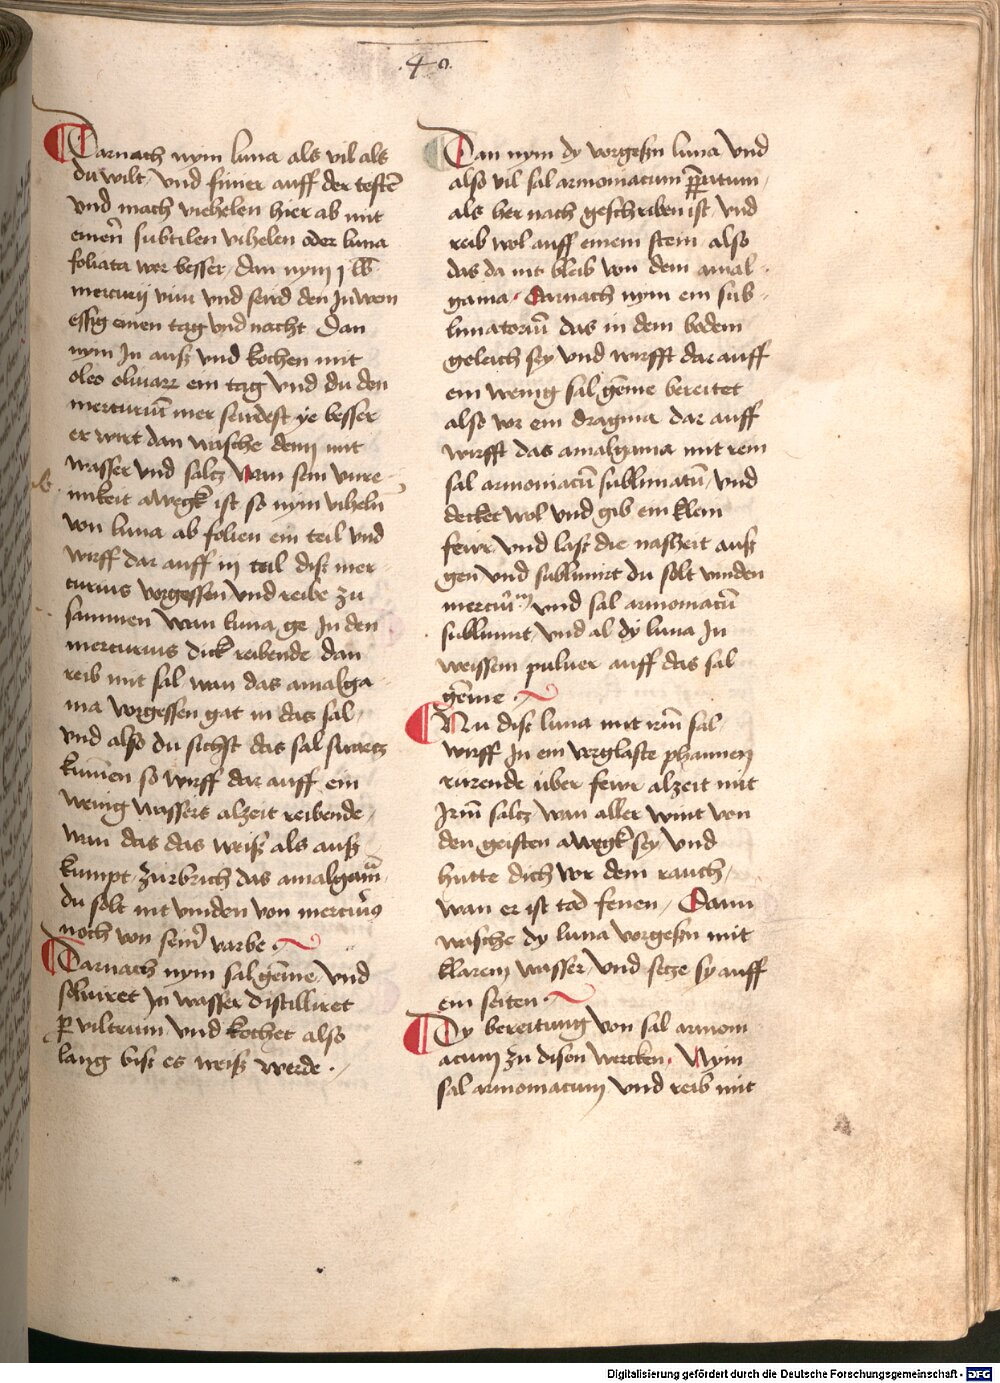 .40.
Darnach nym luna als vil als
du wilt / vnd finer auff der testē
vnd mach viehelen hier ab mit
einer̄ subtilen vihelen oder luna
foliata wer besser / dan nym j lb̄
mercurij viui vnd seud den Jn wein
essig einen tag vnd nacht Dan
nym Jn auß vnd kochen mit
oleo oliuarum ein tag vnd du den
mercuriū mer seudest ye besser
er wirt dan wasche denn mit
wasser vnd saltz Wan sein vnre
nikeit awegk ist so nym viheln̄
von luna ab folien ein teil vnd
wirff dar auff iij teil diß mer
curius vorgessen vnd reibe zu
sammen wan luna ge Jn den
mercurius dick reibende dan
reib mit sal / wan das amalga
ma vorgessen gat in das sal /
vnd also du sichst das sal swartz
kumen so wirff dar auff ein
wenig wassers alzeit reibende /
wan das das weiß als auß
kumpt / zurbrich das amalgam̄ /
du solt nit vinden von mercurius
noch von seiner varbe
Darnach nym sal gēme / vnd
soluiret Jn wasser distilliret
ꝑ viltrum vnd kochet also
lang biß es weiß werde .
Dan nym dy vorgessen luna vnd
also vil sal armoniacum p̄paratum /
als her nach geschriben ist / vnd
reib wol auff einem stein / also
das da nit bleib von dem amal
gama . Darnach nym ein sub
limatoriū das in dem bodem
geleich sey vnd wirfft dar auff
ein wenig sal gēme bereitet
also vor ein dragma dar auff
wirfft das amalgama mit rein
sal armoniacū sublimatū / vnd
decket wol vnd gib ein klein
fewr vnd last die nasheit auß
gen vnd sublimirt du solt vinden
mercuriū vnd sal armoniacū
sublimirt vnd al dy luna Jn
weissem puluer auff das sal
gēme .
Nu diß luna mit irm̄ sal /
wirff Jn ein verglaste phannen
rurende uber fewr alzeit mit
Jrm̄ saltz / wan aller wint von
den geisten awegk sey / vnd
hutte dich vor dem rauch /
wan er ist tod / Dann
wasche dy luna vorgessen mit
klarem wasser / vnd setze sy auff
ein seiten .
Dy bereitung von sal armoni
acum zu disen wercken . Nym
sal armoniacum vnd reib mit
Digitalisierung gefördert durch die Deutsche Forschungsgemeinschaft - DFG